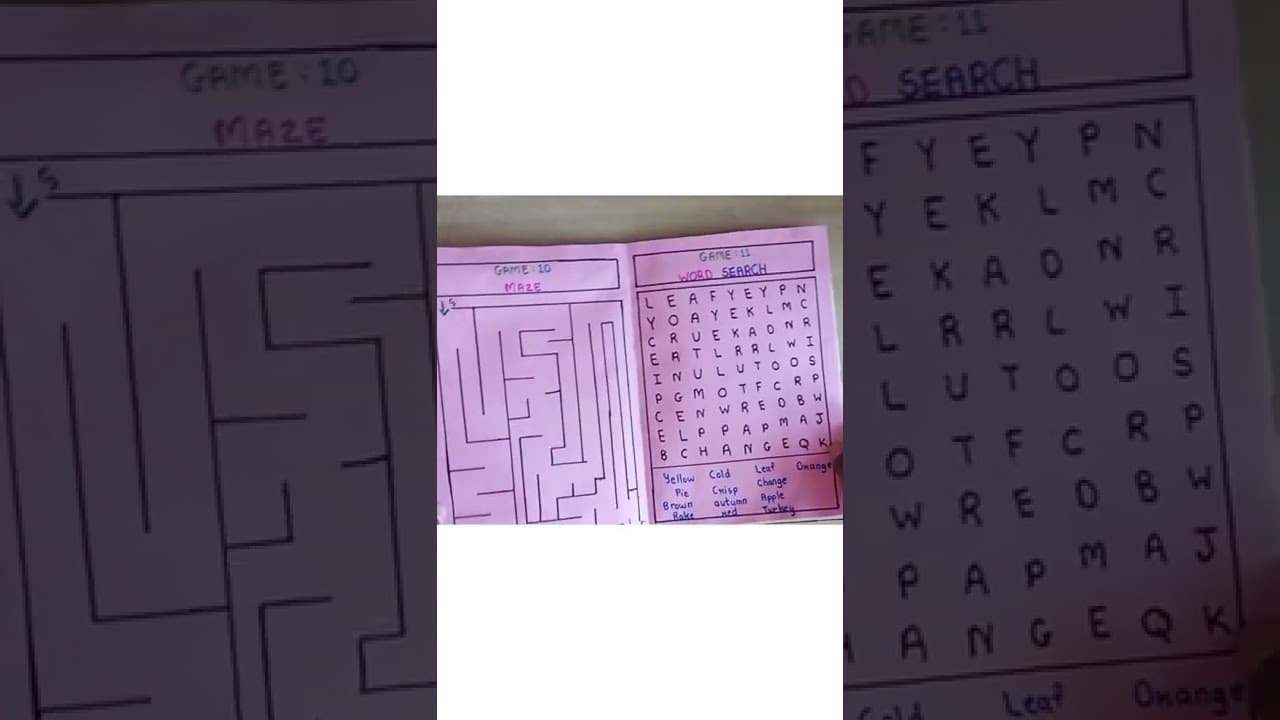 GAME : 10
MAZE
S
GAME : 10
MAZE
S
GAME : 11
WORD SEARCH
L E A F Y E Y P N
Y O A Y E K L M C
C R U E K A O N R
E A T L R R L W I
I N U L U T O O S
P G M O T F C R P
C E N W R E D B W
E L P P A P M A J
B C H A N G E Q K
Yellow Cold Leaf Orange
Pie Crisp Change
Brown autumn Apple
Rake red Turkey
GAME : 11
SEARCH
F Y E Y P N
Y E K L M C
E K A O N R
L R R L W I
L U T O O S
O T F C R P
W R E D B W
P A P M A J
A N G E Q K
Cold Leaf Orange